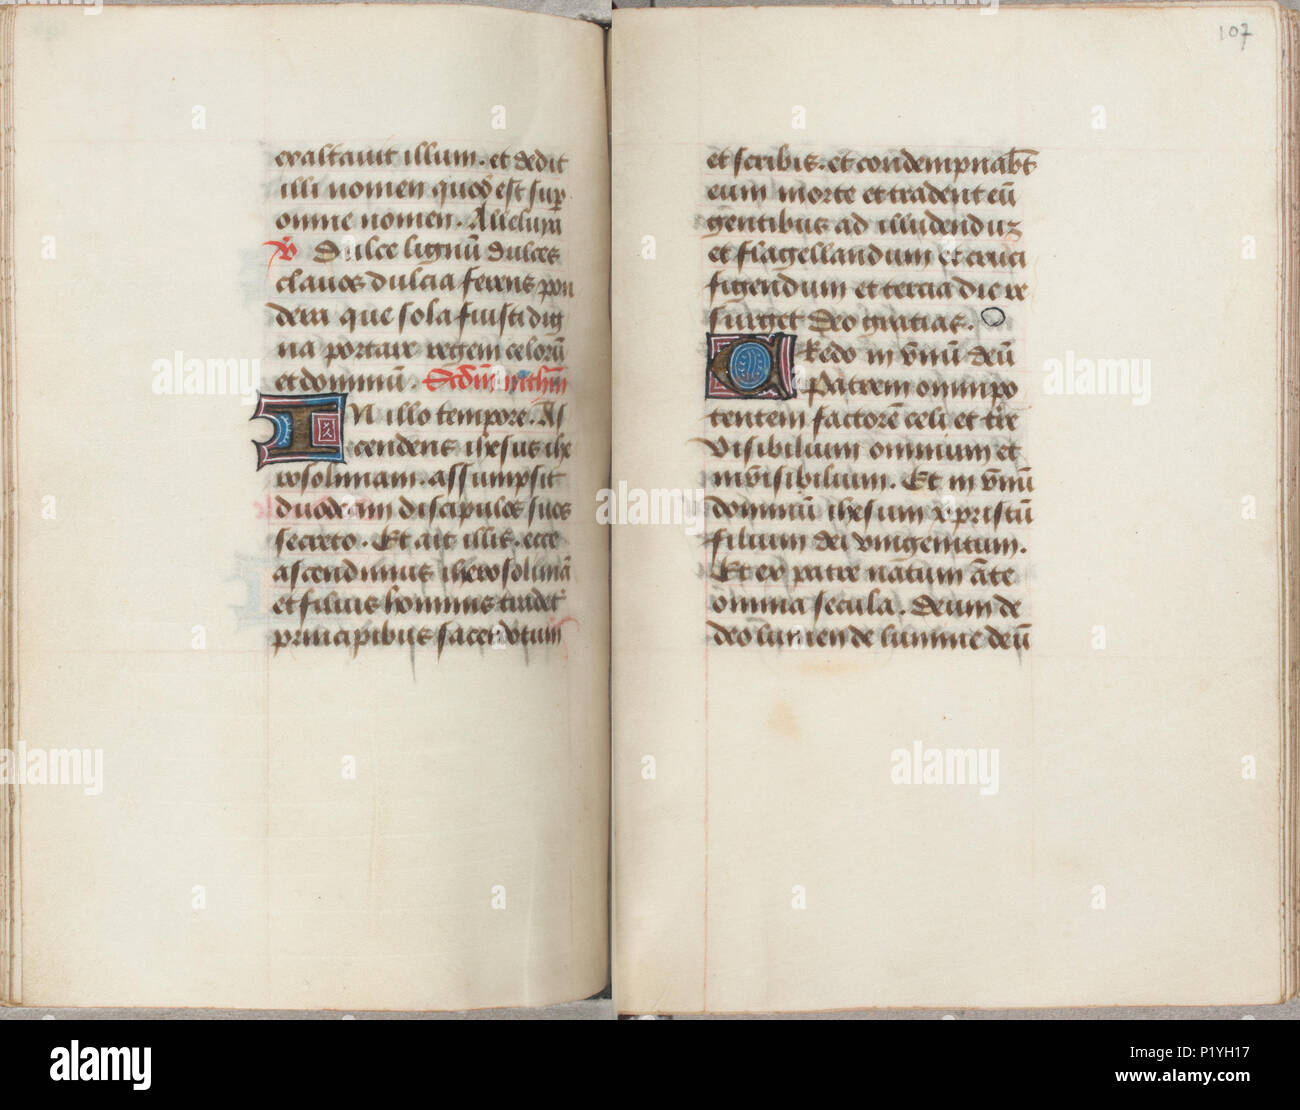 exaltauit illum. et dedit
illi nomen quod est sup̲
omne nomen. Alleluya
V̄ Dulce lignū dulces
clauos dulcia ferens pon
dera que sola fuisti dig
na portare regem celorū
et dominū. Scdm̄ mthm̄
IN illo tempore. As
cendens ihesus ihe
rosolimam. assumpsit
duodecim discipulos suos
secreto. Et ait illis. ecce
ascendimus iherosolimā
et filius hominis tradet᷑
principibus sacerdotum
107
et scribis. et condempnabt̄
eum morte et tradent eū
gentibus ad illudenduz
et flagellandum et cruci
figendum et tercia die re
surget Deo gratias.
CRedo in vnū deū
Patrem omnipo
tentem factorē celi et tre
visibilium omnium et
invisibilium. Et in vnū
dominū ihesum xpristū
filium dei vnigenitum.
Et ex patre natum āte
omnia secula. Deum de
deo lumen de lumine deū
alamy
Image ID: P1YH17
www.alamy.com